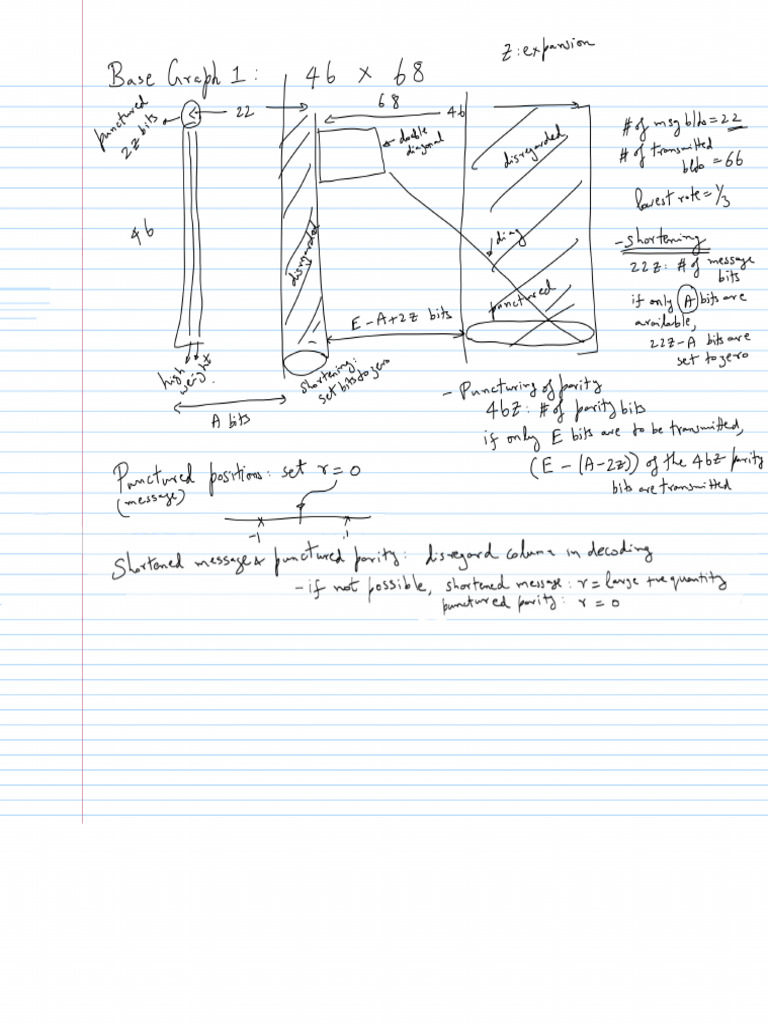 Z: expansion
Base Graph 1: 46 x 68
punctured
2Z bits
22
68
46
double
diagonal
disregarded
# of msg blds = 22
# of transmitted
blds = 66
lowest rate = 1/3
46
disregarded
diag
punctured
E-A+2Z bits
- shortening
22Z: # of message
bits
if only A bits are
available,
22Z-A bits are
set to zero
high
weight
shortening:
set bits to zero
A bits
- Puncturing of parity
46Z: # of parity bits
if only E bits are to be transmitted,
(E - (A-2Z)) of the 46Z parity
bits are transmitted
Punctured positions: set r = 0
(message)
-1
1
Shortened message & punctured parity: disregard column in decoding
- if not possible, shortened message: r = large +ve quantity
punctured parity: r = 0